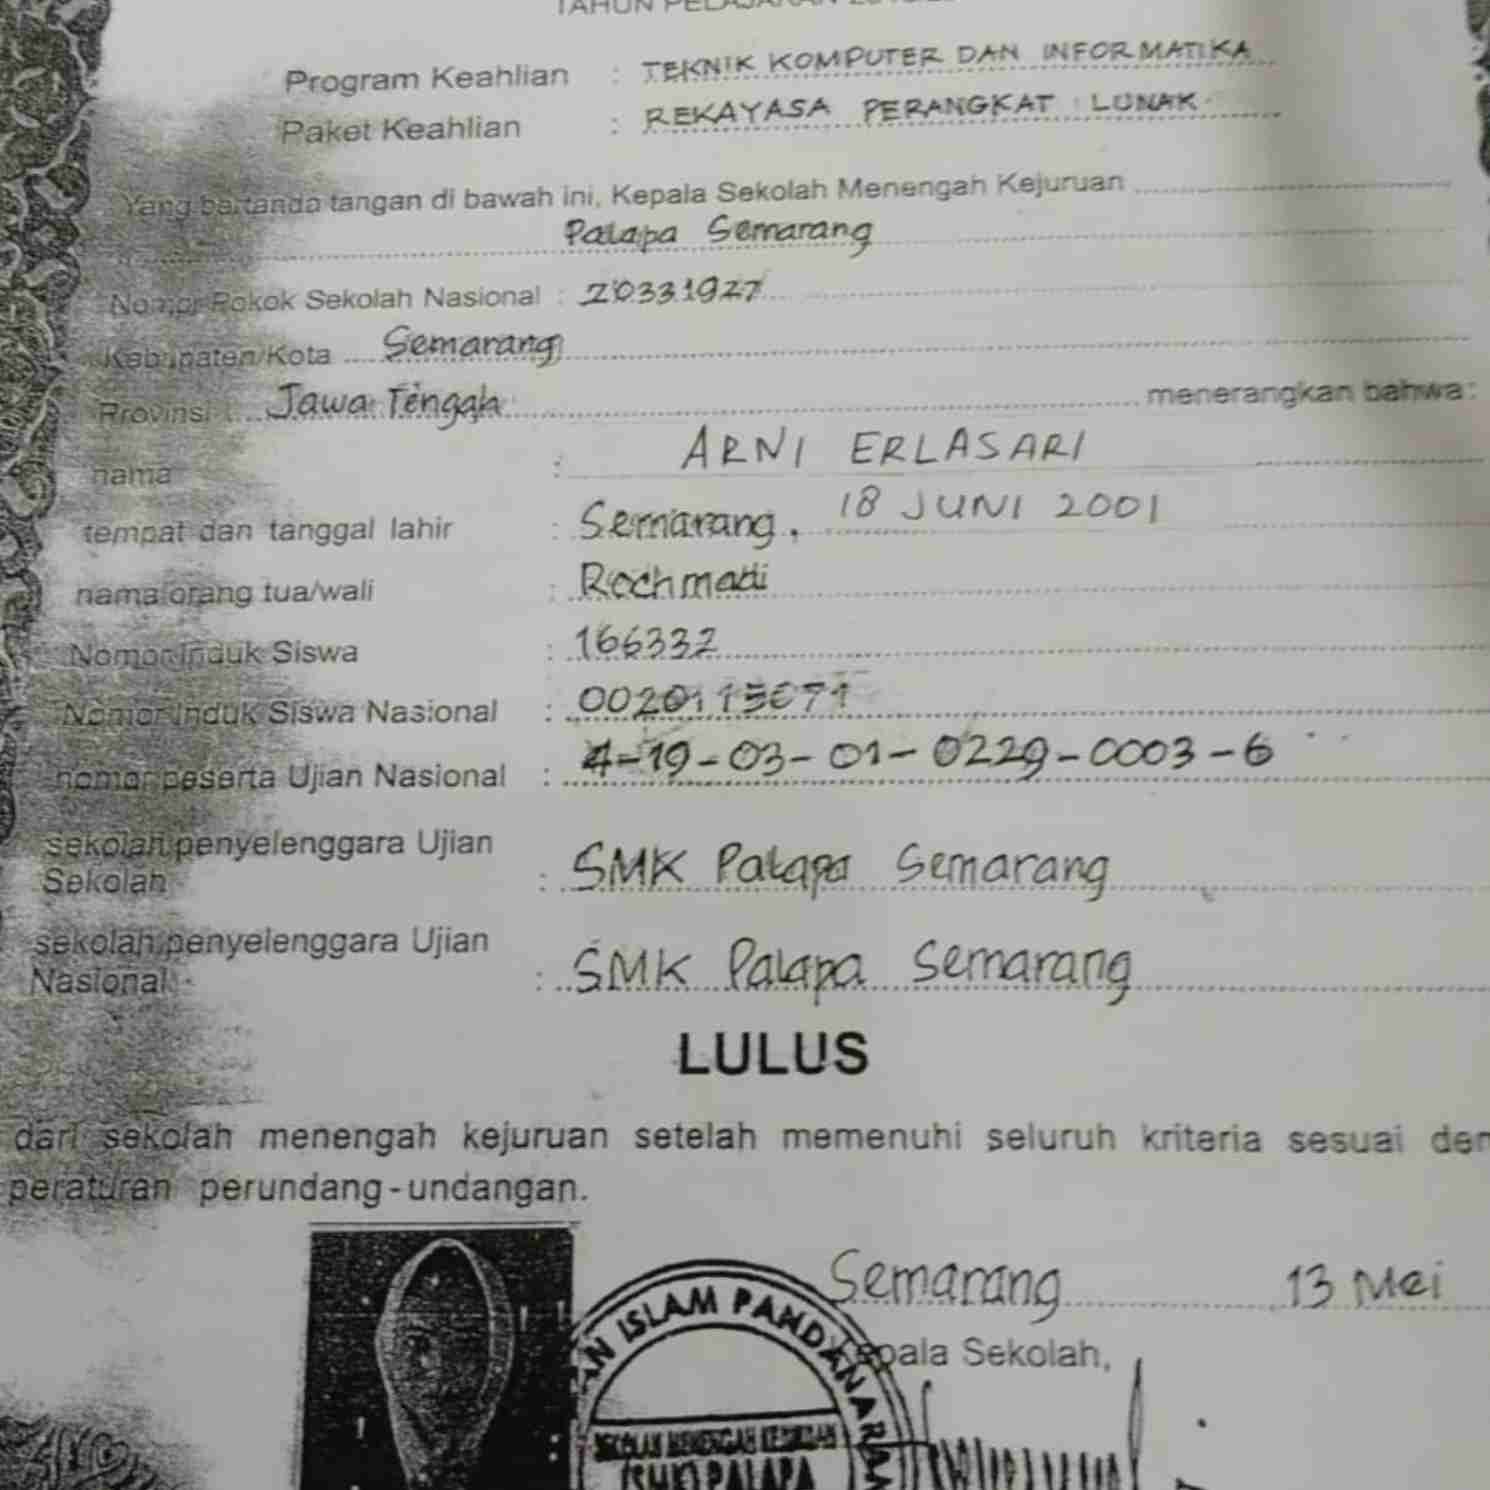 TAHUN PELAJARAN
Program Keahlian : TEKNIK KOMPUTER DAN INFORMATIKA
Paket Keahlian : REKAYASA PERANGKAT LUNAK
Yang bertanda tangan di bawah ini, Kepala Sekolah Menengah Kejuruan
Palapa Semarang
Nomor Pokok Sekolah Nasional : 20331927
Kabupaten/Kota Semarang
Provinsi Jawa Tengah menerangkan bahwa:
nama : ARNI ERLASARI
tempat dan tanggal lahir : Semarang, 18 JUNI 2001
nama orang tua/wali : Rochmadi
Nomor Induk Siswa : 166332
Nomor Induk Siswa Nasional :
nomor peserta Ujian Nasional : 4-19-03-01-0229-0003-6
sekolah penyelenggara Ujian
Sekolah : SMK Palapa Semarang
sekolah penyelenggara Ujian
Nasional : SMK Palapa Semarang
LULUS
dari sekolah menengah kejuruan setelah memenuhi seluruh kriteria sesuai
peraturan perundang-undangan.
Semarang 13 Mei
Kepala Sekolah,
ISLAM PANDANARAN
SEKOLAH MENENGAH KEJURUAN
(SMK) PALAPA